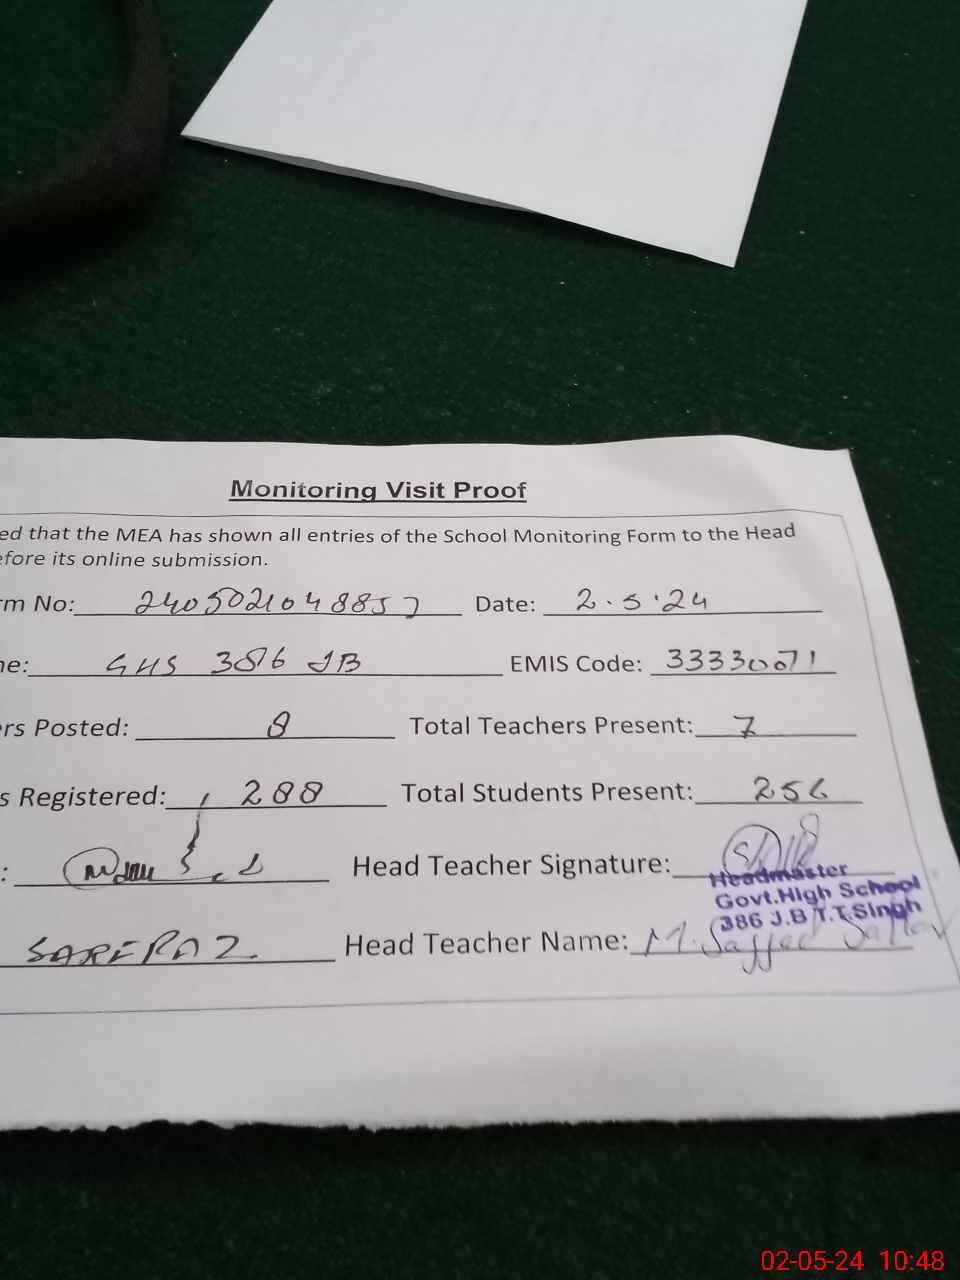 Monitoring Visit Proof
ed that the MEA has shown all entries of the School Monitoring Form to the Head
efore its online submission.
rm No: 2405021048857 Date: 2.5.24
ne: GHS 386 JB EMIS Code: 33330071
ers Posted: 8 Total Teachers Present: 7
s Registered: 288 Total Students Present: 256
: Head Teacher Signature:
Headmaster
Govt.High School
386 J.B T.T.Singh
SARFRAZ Head Teacher Name: M. Sajjad
02-05-24 10:48